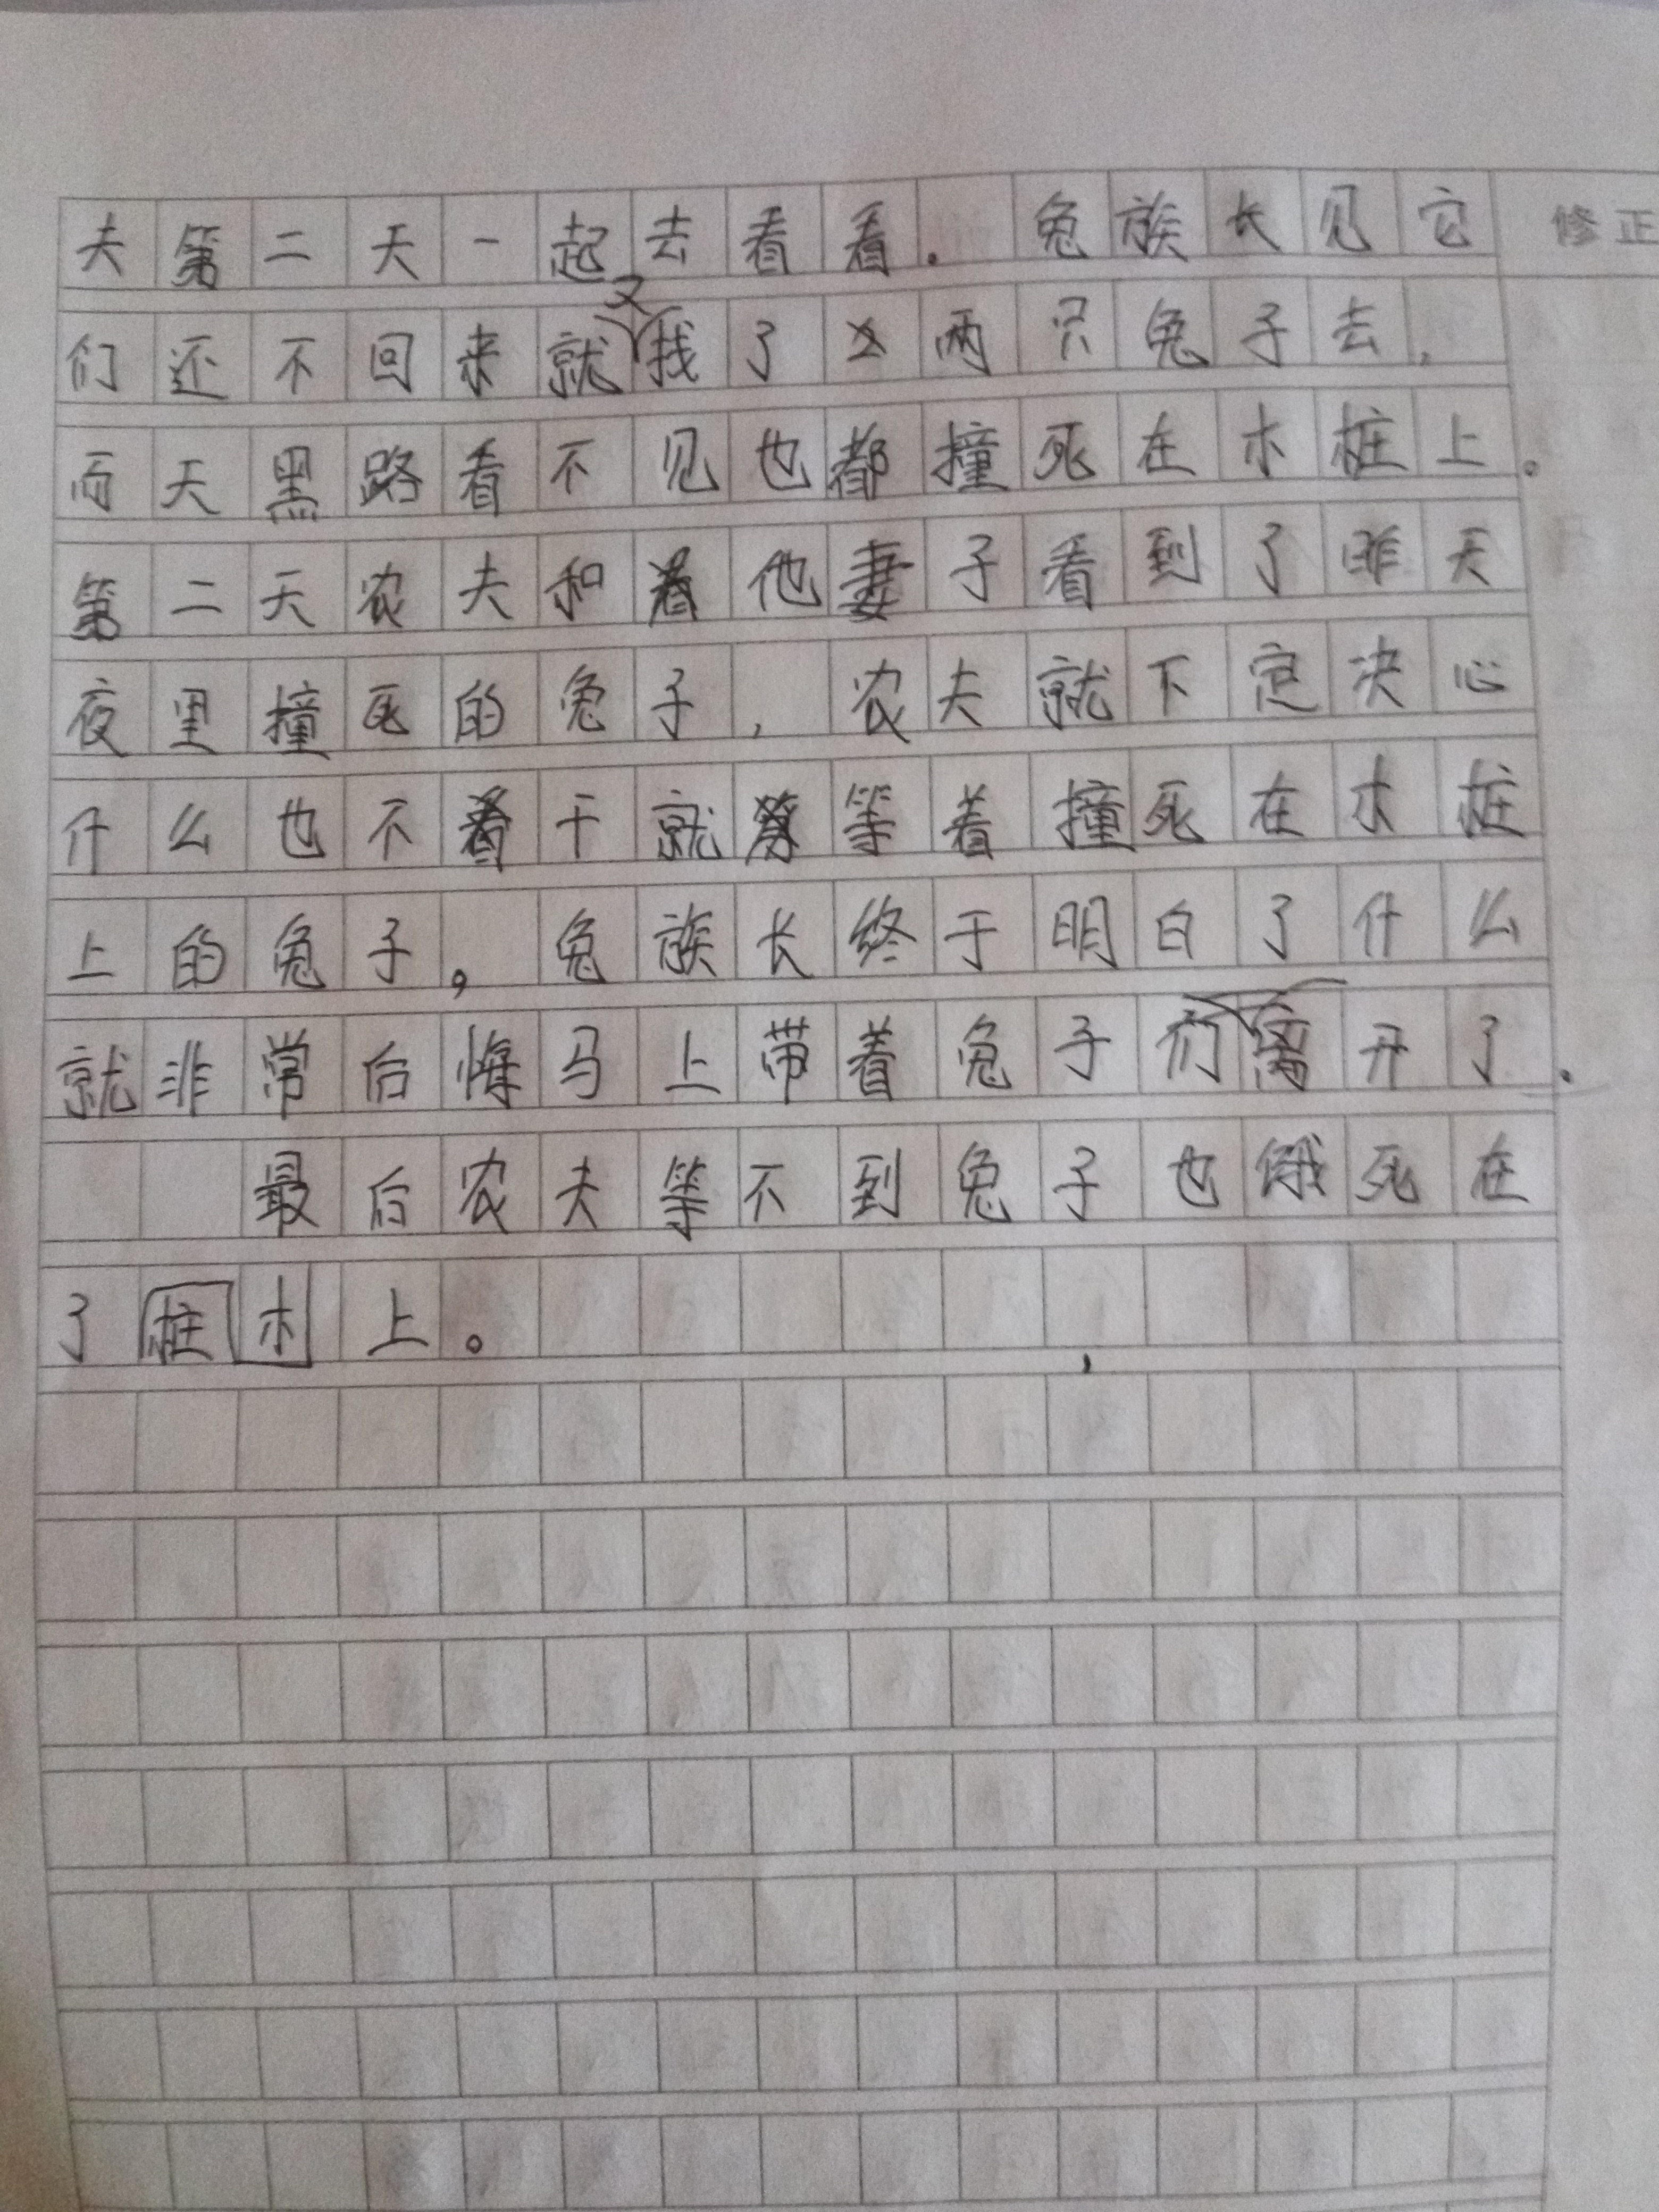 夫第二天一起去看看。兔族长见它
修正
们还不回来就又找了两只兔子去,
而天黑路看不见也都撞死在木桩上。
第二天农夫和他妻子看到了昨天
夜里撞死的兔子,农夫就下定决心
什么也不干就等着撞死在木桩
上的兔子。兔族长终于明白了什么
就非常后悔马上带着兔子们离开了.
最后农夫等不到兔子也饿死在
了桩木上。